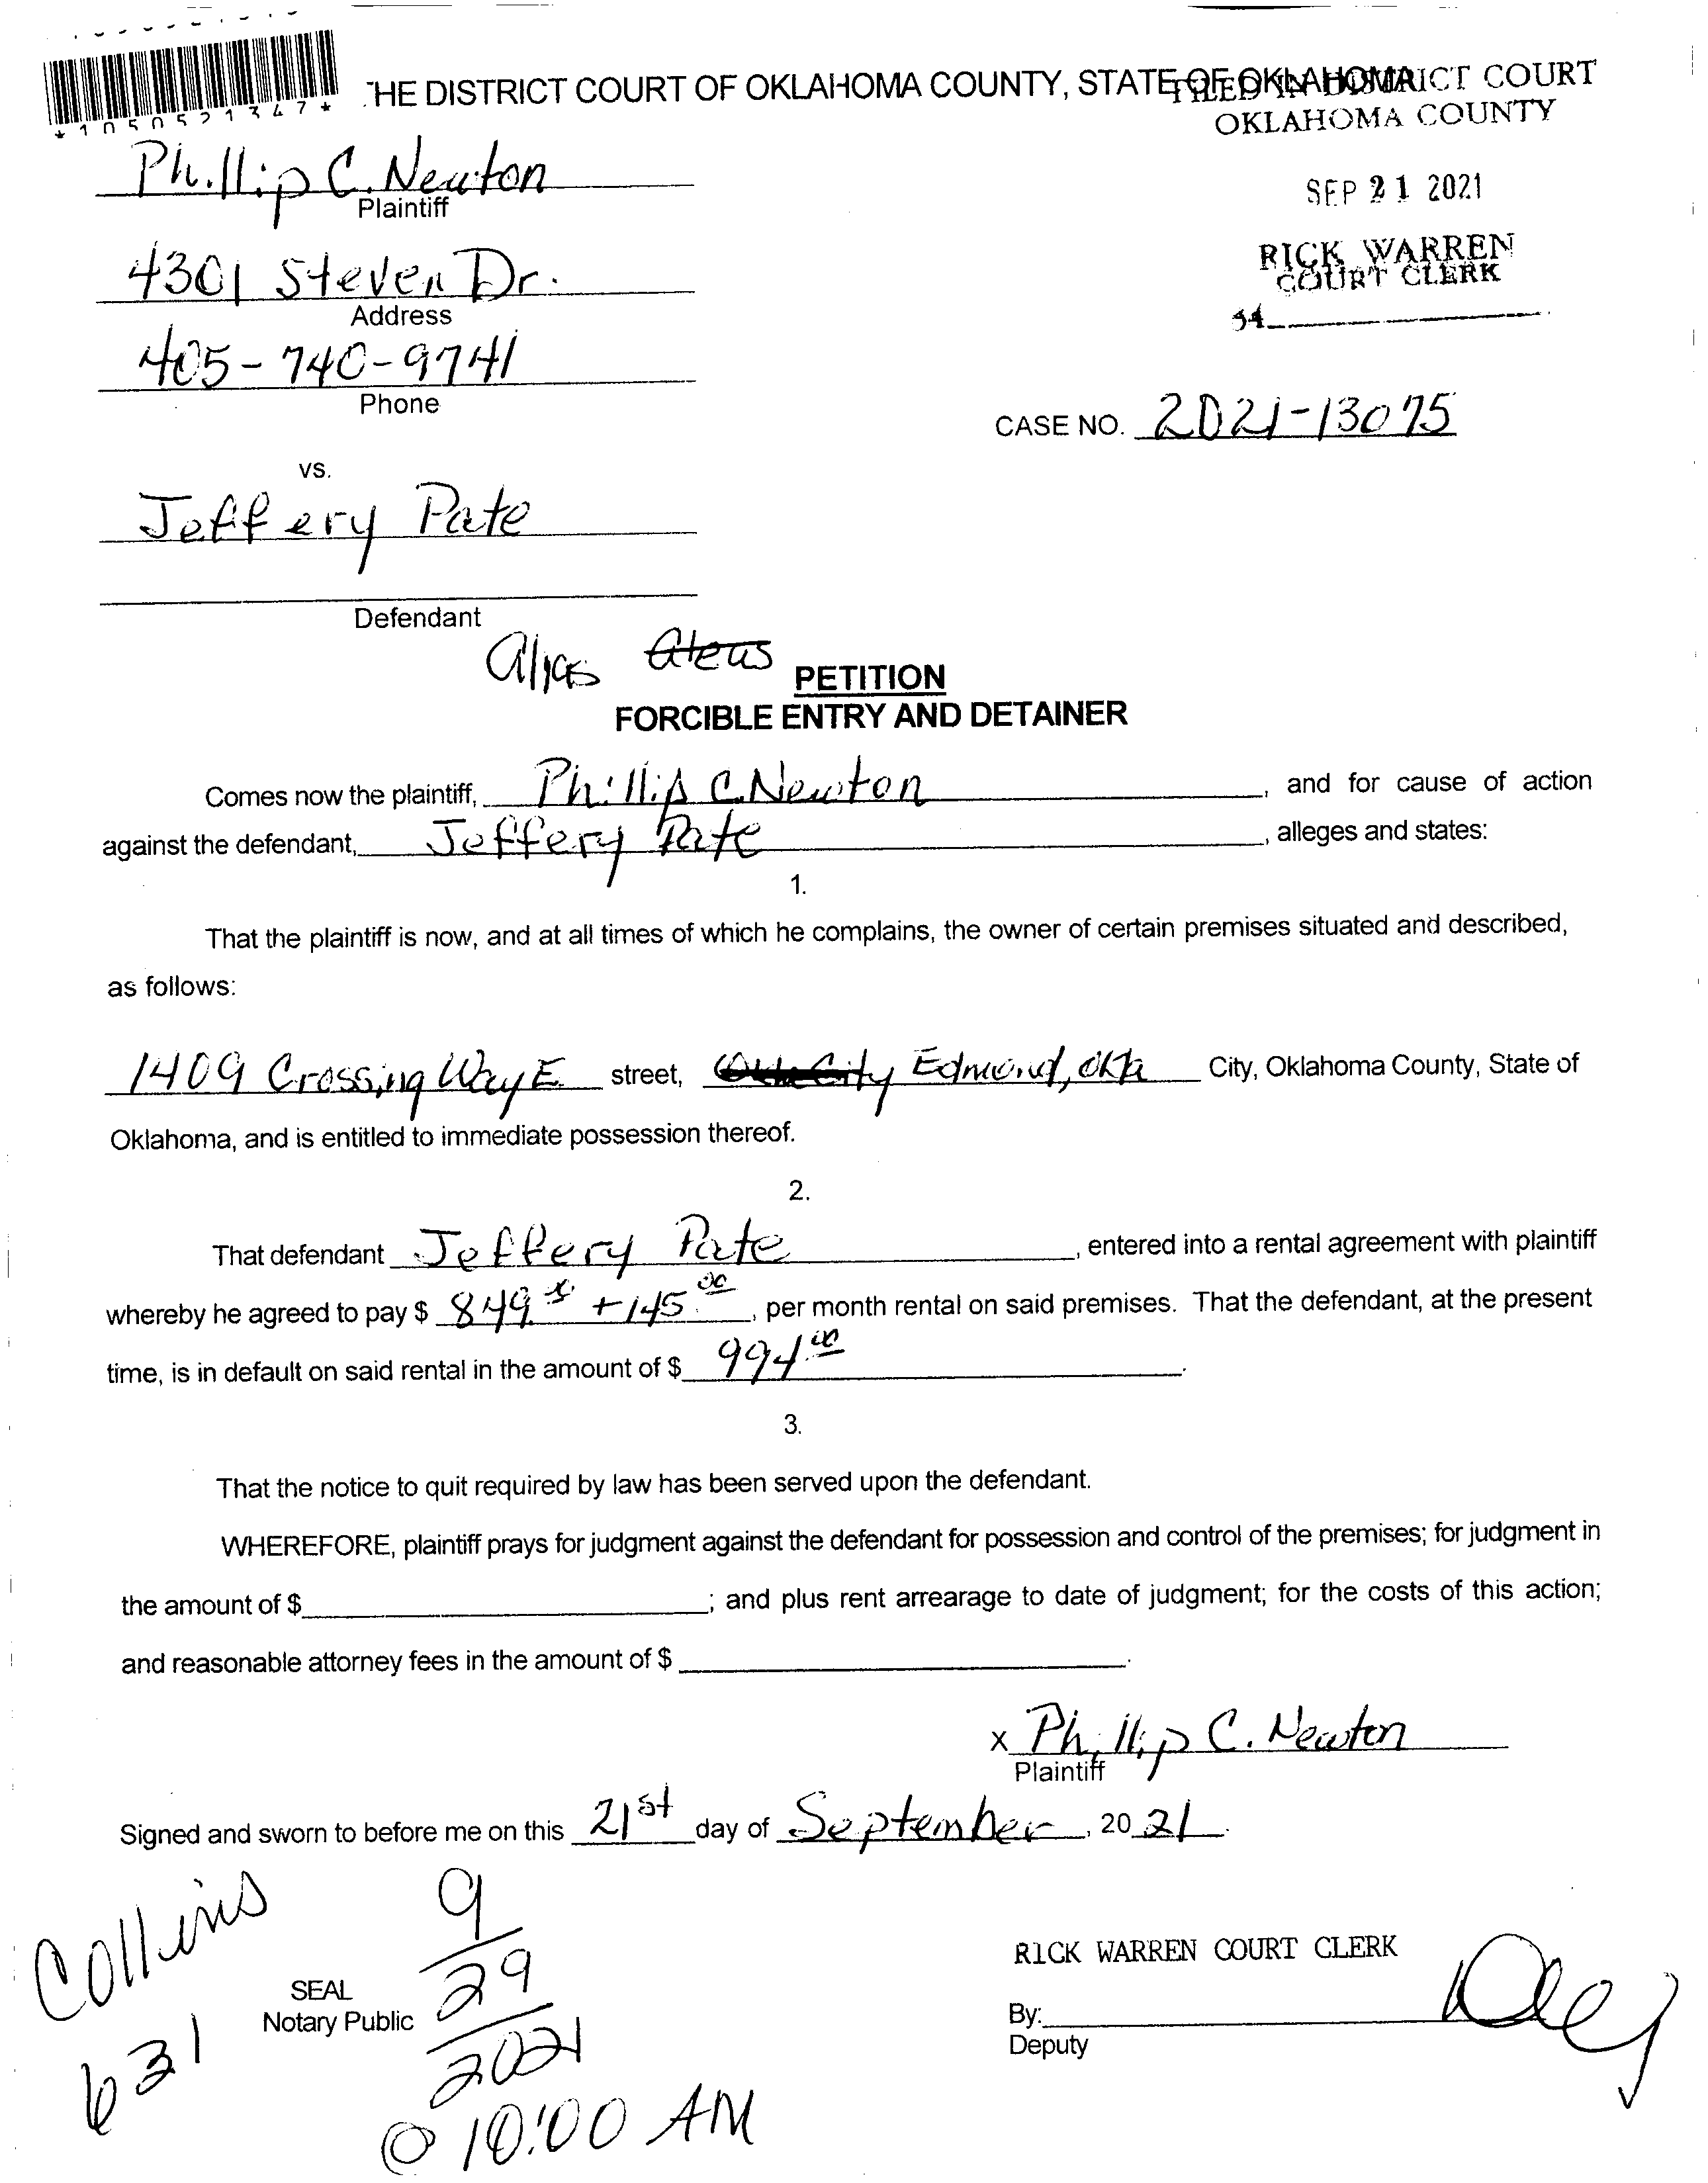 *1050521347*
THE DISTRICT COURT OF OKLAHOMA COUNTY, STATE OF OKLAHOMA
FILED IN DISTRICT COURT
OKLAHOMA COUNTY
SEP 21 2021
RICK WARREN
COURT CLERK
34
Phillip C. Newton
Plaintiff
4301 Steven Dr.
Address
405-740-9741
Phone
CASE NO. 2021-13075
vs.
Jeffery Pate
Defendant
alias
PETITION
FORCIBLE ENTRY AND DETAINER
Comes now the plaintiff, Phillip C. Newton, and for cause of action
against the defendant, Jeffery Pate, alleges and states:
1.
That the plaintiff is now, and at all times of which he complains, the owner of certain premises situated and described,
as follows:
1409 Crossing Way E. street, City Edmond, Okla City, Oklahoma County, State of
Oklahoma, and is entitled to immediate possession thereof.
2.
That defendant Jeffery Pate, entered into a rental agreement with plaintiff
whereby he agreed to pay $ 849. + 145.00, per month rental on said premises. That the defendant, at the present
time, is in default on said rental in the amount of $ 994.00.
3.
That the notice to quit required by law has been served upon the defendant.
WHEREFORE, plaintiff prays for judgment against the defendant for possession and control of the premises; for judgment in
the amount of $; and plus rent arrearage to date of judgment; for the costs of this action;
and reasonable attorney fees in the amount of $.
X Phillip C. Newton
Plaintiff
Signed and sworn to before me on this 21st day of September, 2021.
Collins
631
SEAL
Notary Public
9
29
2021
@ 10:00 AM
RICK WARREN COURT CLERK
By:
Deputy